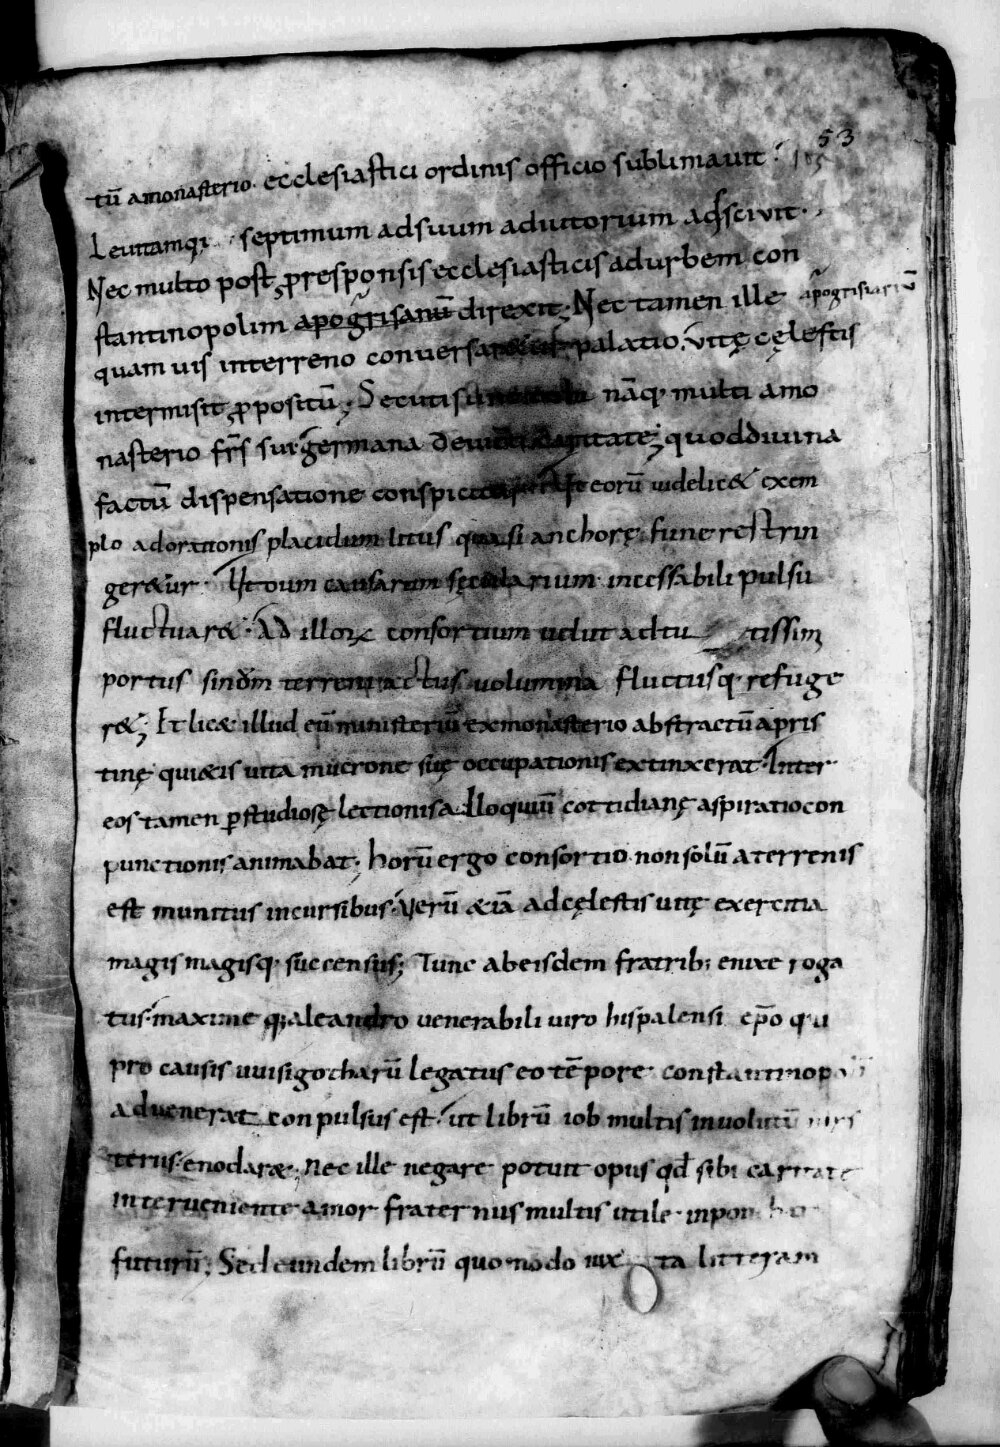 53
tū amonasterio· ecclesiastici ordinis officio sublimauit·
Leuitamq; septimum adsuum adiutorium adscivit·
Nec multo post, ꝓresponsis ecclesiasticis adurbem con
stantinopolim apogrisanū direxit; Nec tamen ille apogrisiariū
quam uis interreno palatio. vitę cęlestis
intermisit ꝓpositū; Secuti nāq; multi amo
nasterio frs̄ sui germana quoddiuina
factū dispensatione eorū uidelic& exem
plo adorationis placidum litus quasi anchorę fune restrin
ger&ur· ut dum causarum sęcularium incessabili pulsu
fluctuar&· Ad illoꝝ consortium uelut adtu tissim
portus sinū terreni actus uolumina fluctusq· refuge
r&; Et lic& illud eū ministeriū exmonasterio abstractū apris
tinę qui&is uita mucrone suę occupationis extinxerat· Inter
eos tamen ꝑstudiosę lectionis alloquiū cottidianę aspiratio con
punctionis animabat; horū ergo consortio non solū aterrenis
est munitus incursibus· Verū &iā adcęlestis uitę exercitia
magis magisq· succensus; Tunc abeisdem fratrib; enixe roga
tus· maxime q; aleandro venerabili viro hispalensi ep̄o qui
pro causis uuisigotharū legatus eo tēpore constantinopoli
aduenerat conpulsus est· ut librū iob multis inuolutū mys
teriis· enodar&· Nec ille negare potuit opus qd̄ sibi caritate
interueniente· amor fraternus multis utile· inponebat
futurū; Sed eundem librū quomodo iux ta litteram